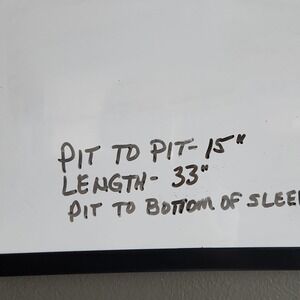 PIT TO PIT- 15"
LENGTH- 33"
PIT TO BOTTOM OF